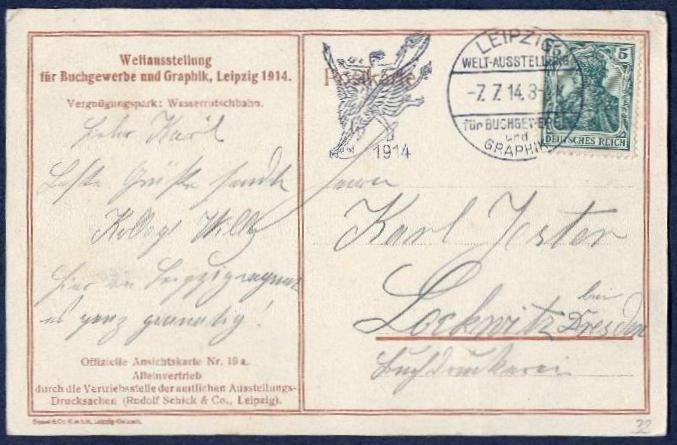 Weltausstellung
für Buchgewerbe und Graphik, Leipzig 1914.
Vergnügungspark: Wasserrutschbahn.
Postkarte
1914
LEIPZIG
WELT-AUSSTELLUNG
-7.7.14.8-
für BUCHGEWERBE
und
GRAPHIK
5
DEUTSCHES REICH
Lieber Karl
Beste Grüße sendet
Kollege Willy
Hier in Leipzig
es ganz
Herrn
Karl
Lockwitz bei Dresden
Buchdruckerei
Offizielle Ansichtskarte Nr. 19 a.
Alleinvertrieb
durch die Vertriebsstelle der amtlichen Ausstellungs-
Drucksachen (Rudolf Schick & Co., Leipzig).
32